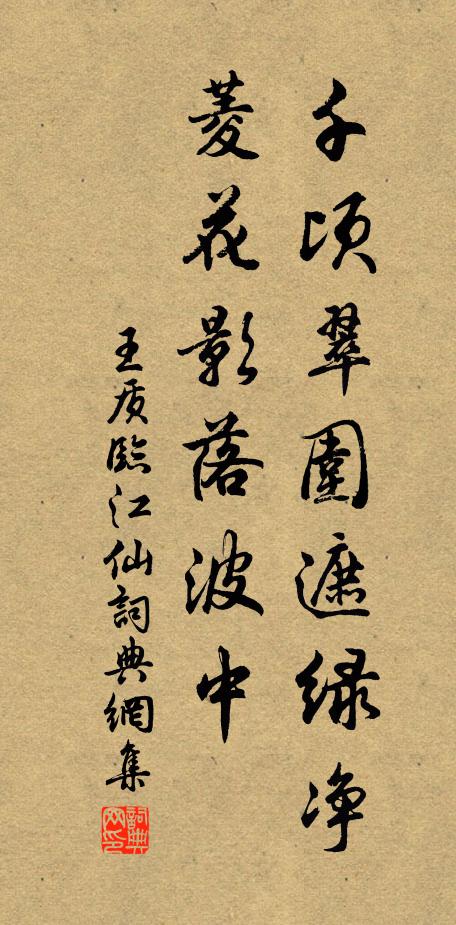 千顷翠围遮绿净
菱花影落波中
王质临江仙词典网集
詞典网印